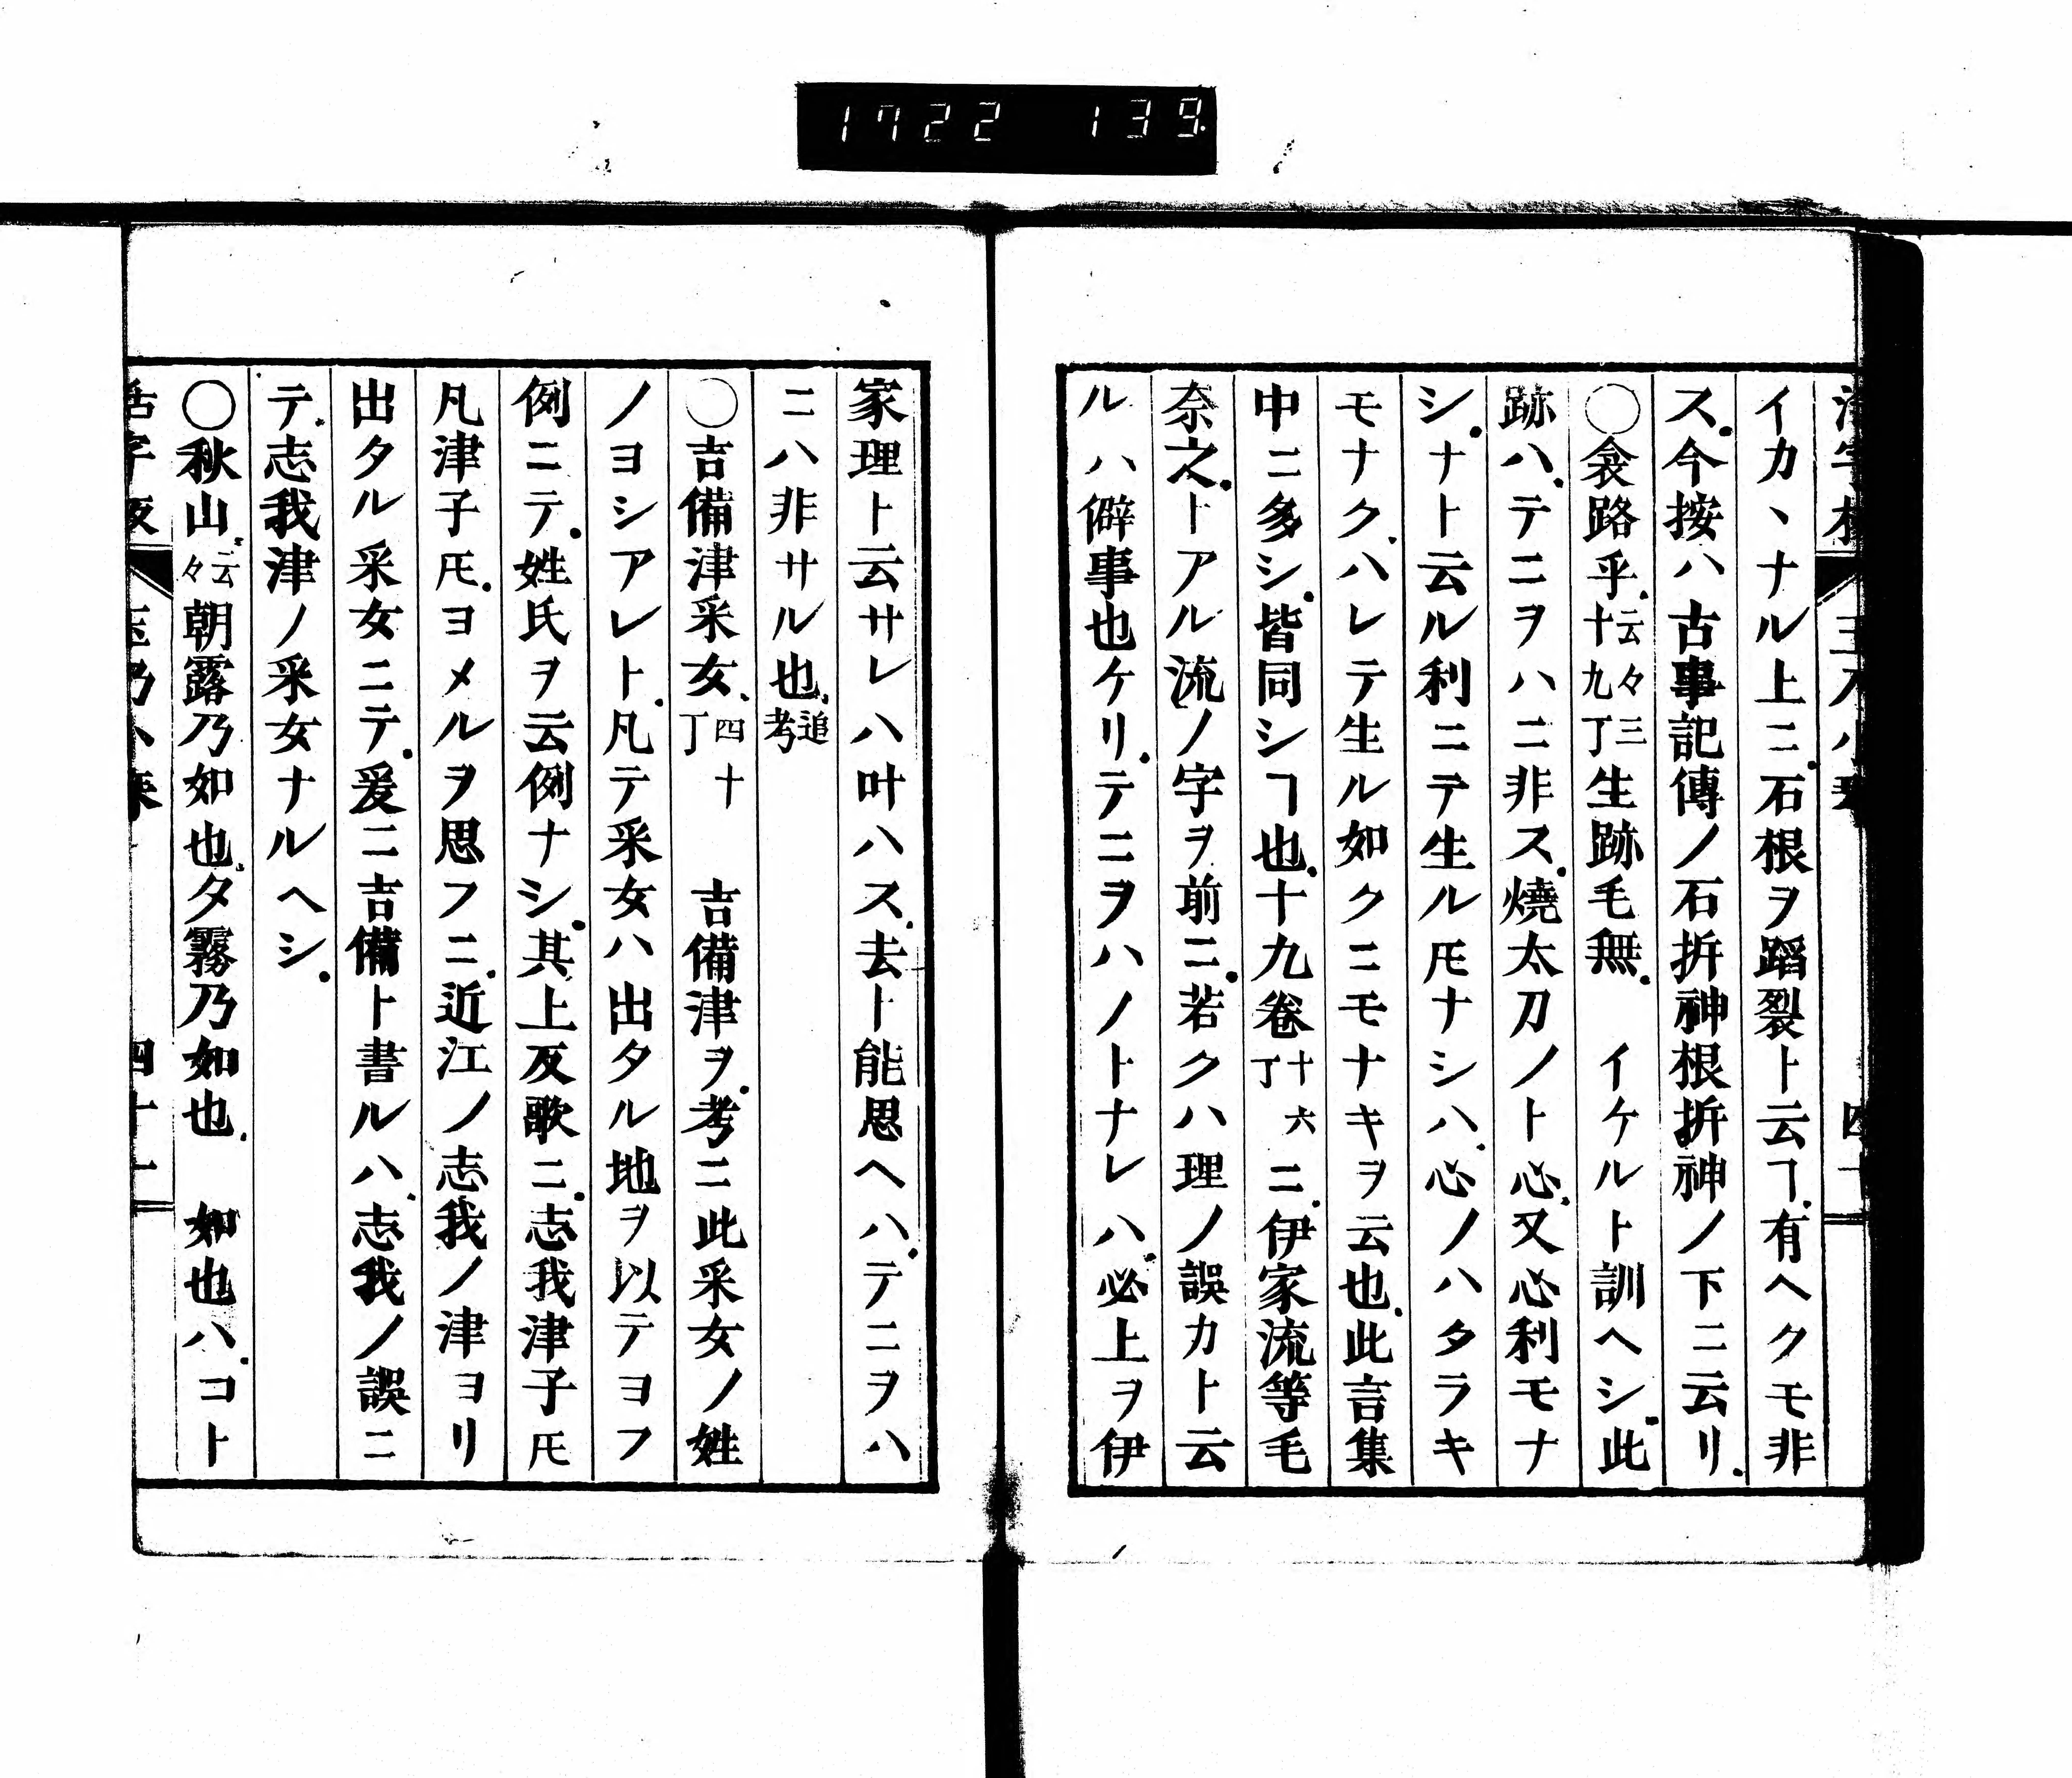 1722 139
イカヽナル上ニ.石根ヲ蹈裂ト云ヿ.有ヘクモ非
ス.今按ハ古事記傳ノ石拆神根拆神ノ下ニ云リ.
○衾路乎.云々三十九丁生跡毛無.　イケルト訓ヘシ.此
跡ハ.テニヲハニ非ス.燒太刀ノト心.又心利モナ
シ.ナト云ル利ニテ生ル𪜈ナシハ.心ノハタラキ
モナク.ハレテ生ル如クニモナキヲ云也.此言集
中ニ多シ.皆同シヿ也.十九卷十六丁ニ.伊家流等毛
奈之.トアル流ノ字ヲ前ニ.若クハ理ノ誤カト云
ルハ僻事也ケリ.テニヲハノトナレハ.必上ヲ伊
家理ト云サレハ叶ハス.去ト能思ヘハ.テニヲハ
ニハ非サル也.追考
○吉備津采女.四十丁　吉備津ヲ.考ニ此采女ノ姓
ノヨシアレト.凡テ采女ハ出タル地ヲ以テヨフ
例ニテ.姓氏ヲ云例ナシ.其上反歌ニ.志我津子𪜈
凡津子𪜈.ヨメルヲ思フニ.近江ノ志我ノ津ヨリ
出タル采女ニテ.爰ニ吉備ト書ルハ.志我ノ誤ニ
テ.志我津ノ采女ナルヘシ.
○秋山.云々朝露乃如也.夕霧乃如也.　如也ハ.コト
四十一